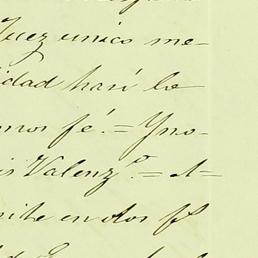 Juez unico me-
idad hasí lo
mos fé.= Yno-
is Valenzº.= A-
mite en dos fs